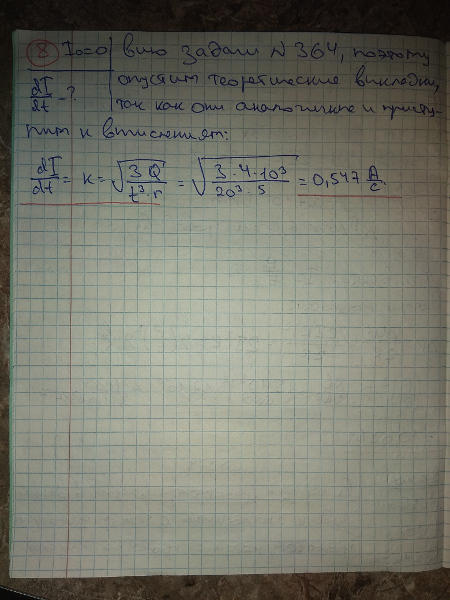 8 I₀=0 вию задачи N 364, поэтому
dI/dt - ? опустим теоретические выкладки,
так как они аналогичные и присту-
пим к вычислениям:
dI/dt = k = √(3Q/(t³·r)) = √(3·4·10³/(20³·5)) = 0,547 A/c